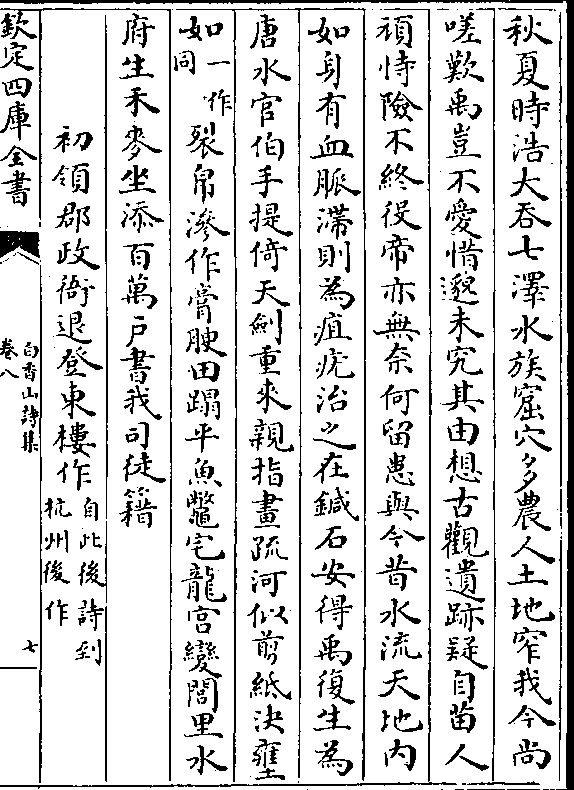 秋夏時浩大吞七澤水族窟穴多農人土地窄我今尚
嗟歎禹豈不愛惜邈未究其由想古觀遺跡疑自苗人
頑恃險不終役帝亦無奈何留患與今昔水流天地内
如身有血脈滯則為疽疣治之在鍼石安得禹復生為
唐水官伯手提倚天劍重來親指畫疏河似剪紙決壅
如一作同裂帛滲作膏腴田蹋平魚鼈宅龍宫變閭里水
府生禾麥坐添百萬戸書我司徒籍
初領郡政衙退登東樓作自此後詩到杭州後作
欽定四庫全書
白香山詩集
卷八
七